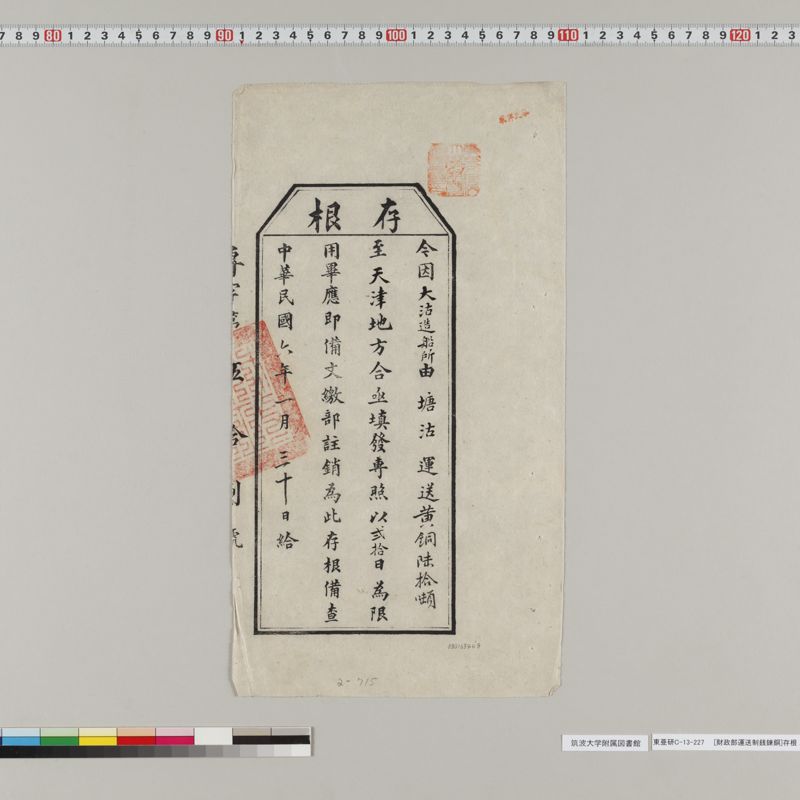 7 8 9 80 1 2 3 4 5 6 7 8 9 90 1 2 3 4 5 6 7 8 9 100 1 2 3 4 5 6 7 8 9 110 1 2 3 4 5 6 7 8 9 120 1 2 3
存根
今因大沽造船所由塘沽運送黄銅陸拾噸
至天津地方合亟填發專照以貳拾日為限
用畢應即備文繳部註銷為此存根備查
中華民國六年一月三十日給
專字第伍拾捌號
2-715
筑波大学附属図書館
東亜研C-13-227 [財政部運送制銭錬銅]存根